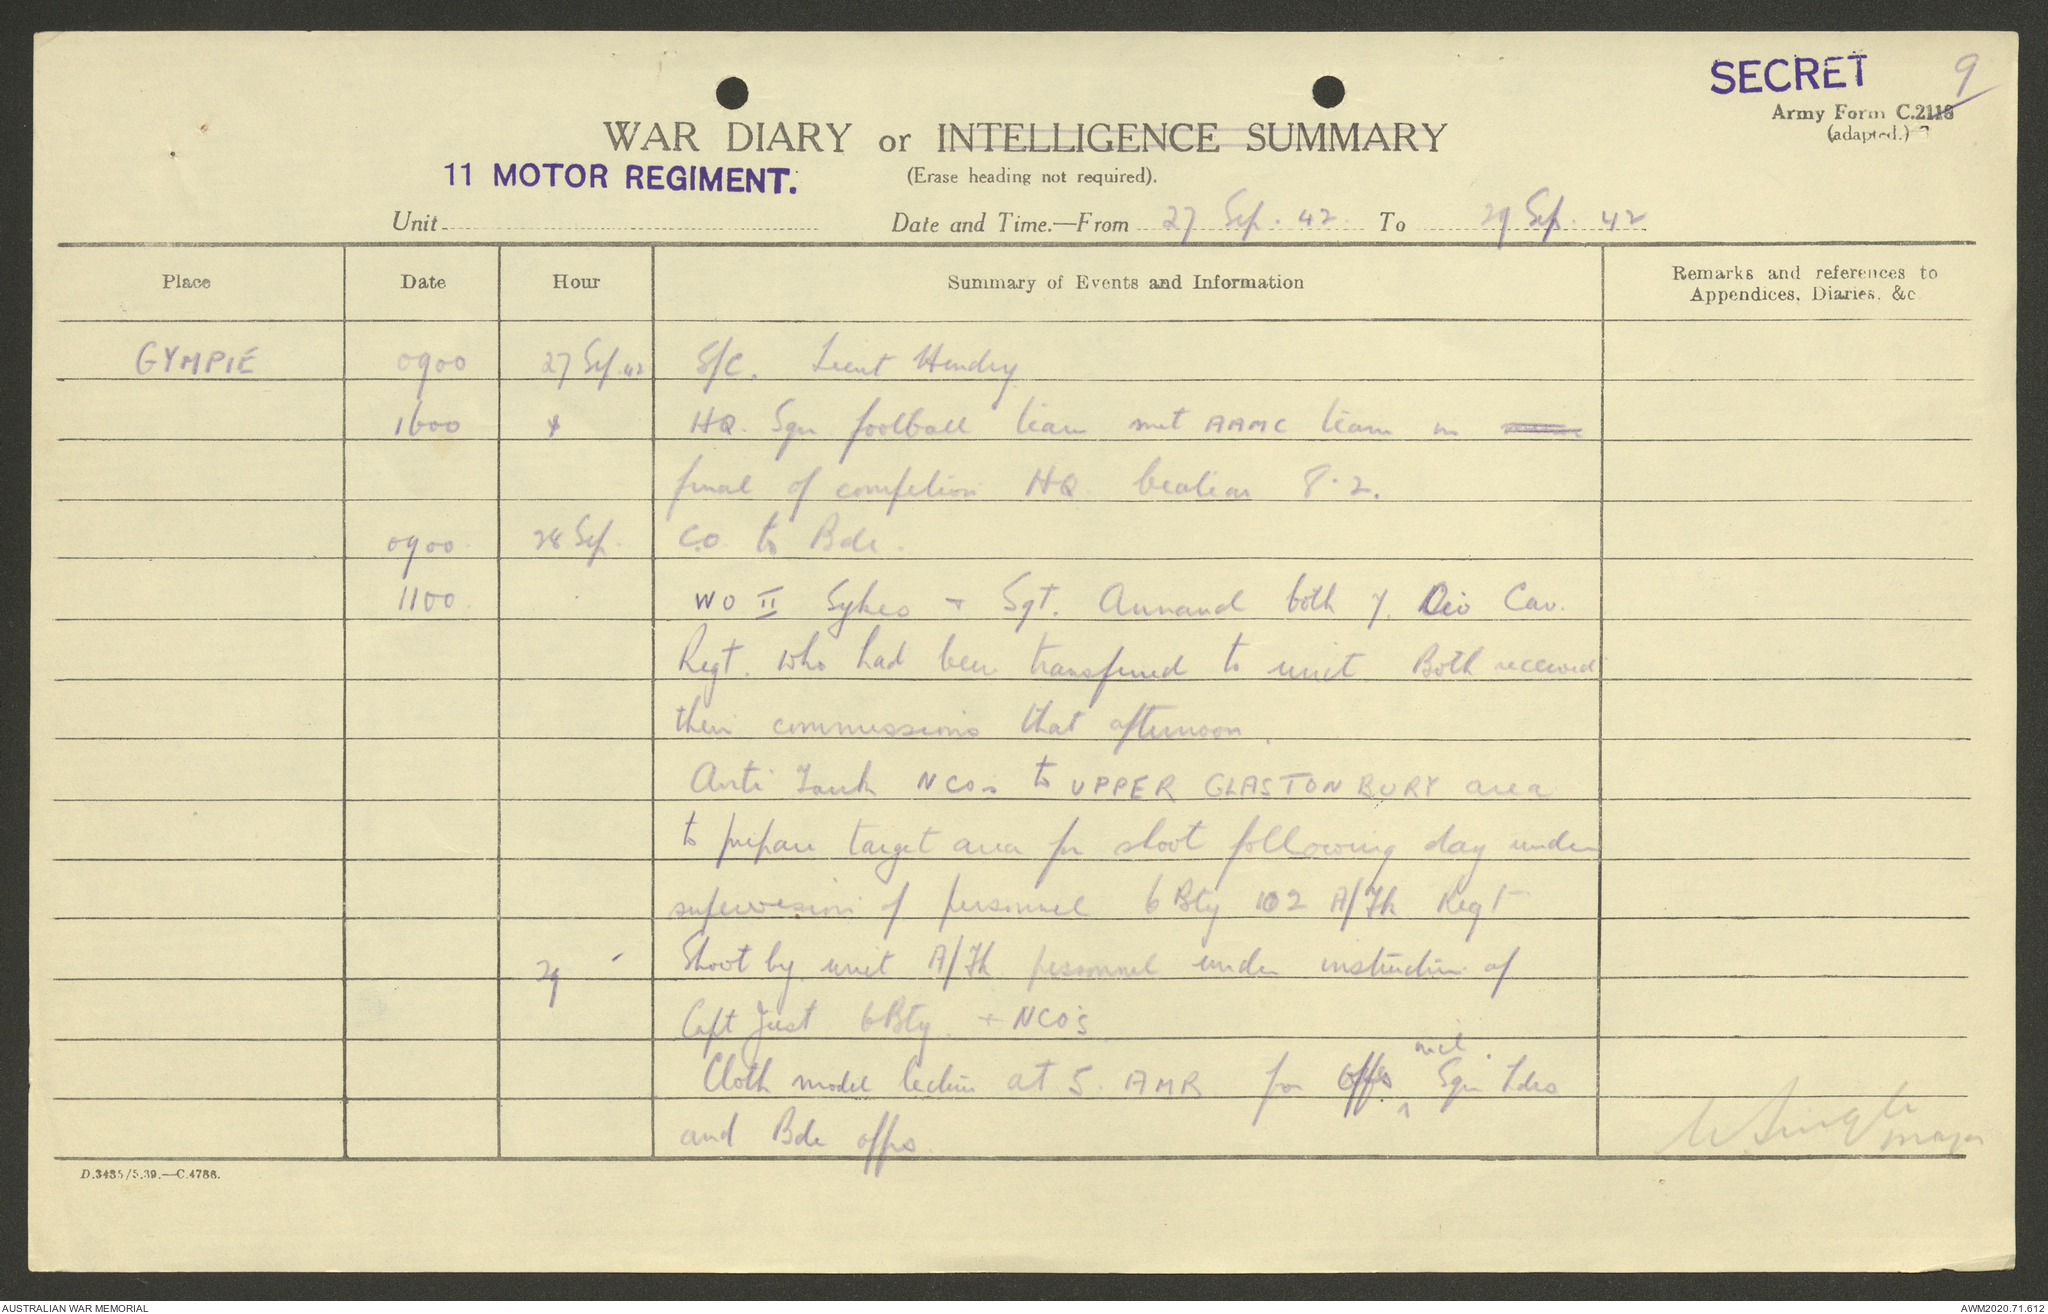 SECRET 9
Army Form C.2118
(adapted.)
WAR DIARY or INTELLIGENCE SUMMARY
11 MOTOR REGIMENT.
(Erase heading not required).
Unit Date and Time.—From 27 Sep. 42. To 29 Sep. 42
Place Date Hour Summary of Events and Information Remarks and references to
Appendices, Diaries, &c
GYMPIE 0900 27 Sep. 42 S/C. Lieut Hendry
1600 HQ. Sqn football team met AAMC team in
final of competion HQ. beation 8.2.
0900. 28 Sep. C.O. to Bde.
1100 WO II Sykes + Sgt. Annand both 7. Div Cav.
Regt. who had been transferred to unit. Both received
their commissions that afternoon.
Anti Tank NCOs to UPPER GLASTONBURY area
to prepare target area for shoot following day under
supervision of personnel 6 Bty 102 A/Tk Regt
29 Shoot by unit A/Tk personnel under instruction of
Capt Just 6 Bty. + NCO's
Cloth model lecture at 5. AMR for offrs incl. Sqn Ldrs
and Bde offrs.
Major
D.3435/5.39.—C.4788.
AUSTRALIAN WAR MEMORIAL AWM2020.71.612